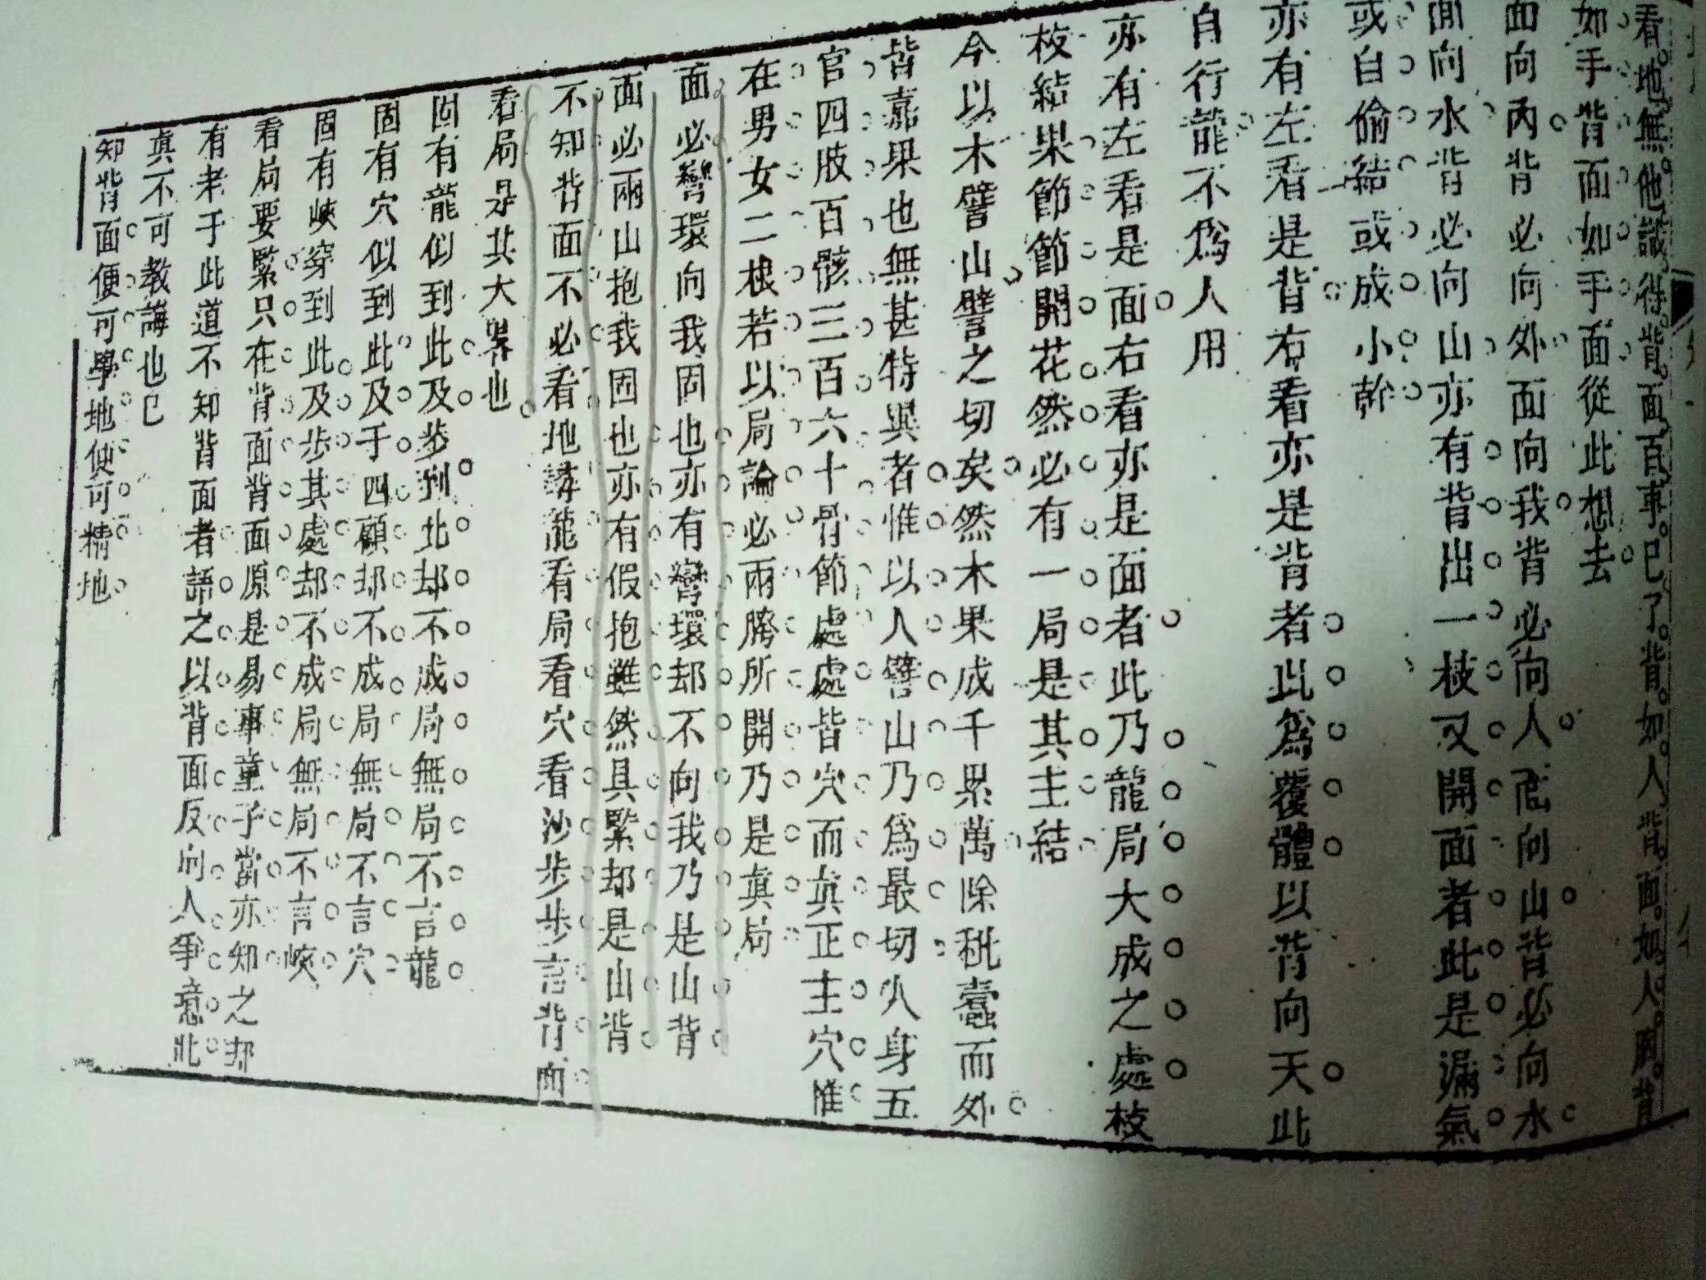 看地無他識得背面百事已了背如人背面如人胸背
如手背面如手面從此想去
面向內背必向外面向我背必向人面向山背必向水
面向水背必向山亦有背出一枝又開面者此是漏氣
或自偷結或成小幹
亦有左看是背右看亦是背者此為覆體以背向天此
自行龍不為人用
亦有左看是面右看亦是面者此乃龍局大成之處枝
枝結果節節開花然必有一局是其主結
今以木譬山譬之切矣然木果成千累萬除秕蠹而外
皆嘉果也無甚特異者惟以人譬山乃為最切人身五
官四肢百骸三百六十骨節處處皆穴而真正主穴惟
在男女二根若以局論必兩胯所開乃是真局
面必彎環向我固也亦有彎環却不向我乃是山背
面必兩山抱我固也亦有假抱雖然具緊却是山背
不知背面不必看地講龍看局看穴看沙步步言背面
看局是其大畧也
固有龍似到此及步到此却不成局無局不言龍
固有穴似到此及于四顧却不成局無局不言穴
固有峽穿到此及步其處却不成局無局不言峽
看局要緊只在背面背面原是易事童子當亦知之却
有老于此道不知背面者語之以背面反向人爭意此
真不可教誨也已
知背面便可學地便可精地